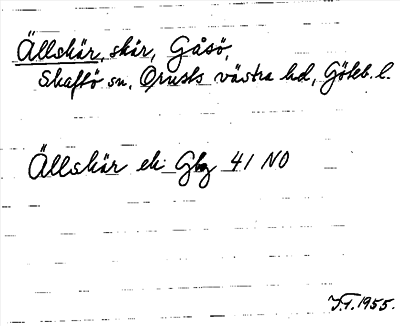 Ällskär, skär, Gåsö,
Skaftö sn, Orusts västra hd, Göteb. l.
Ällskär ek Gbg 41 NO
1955.